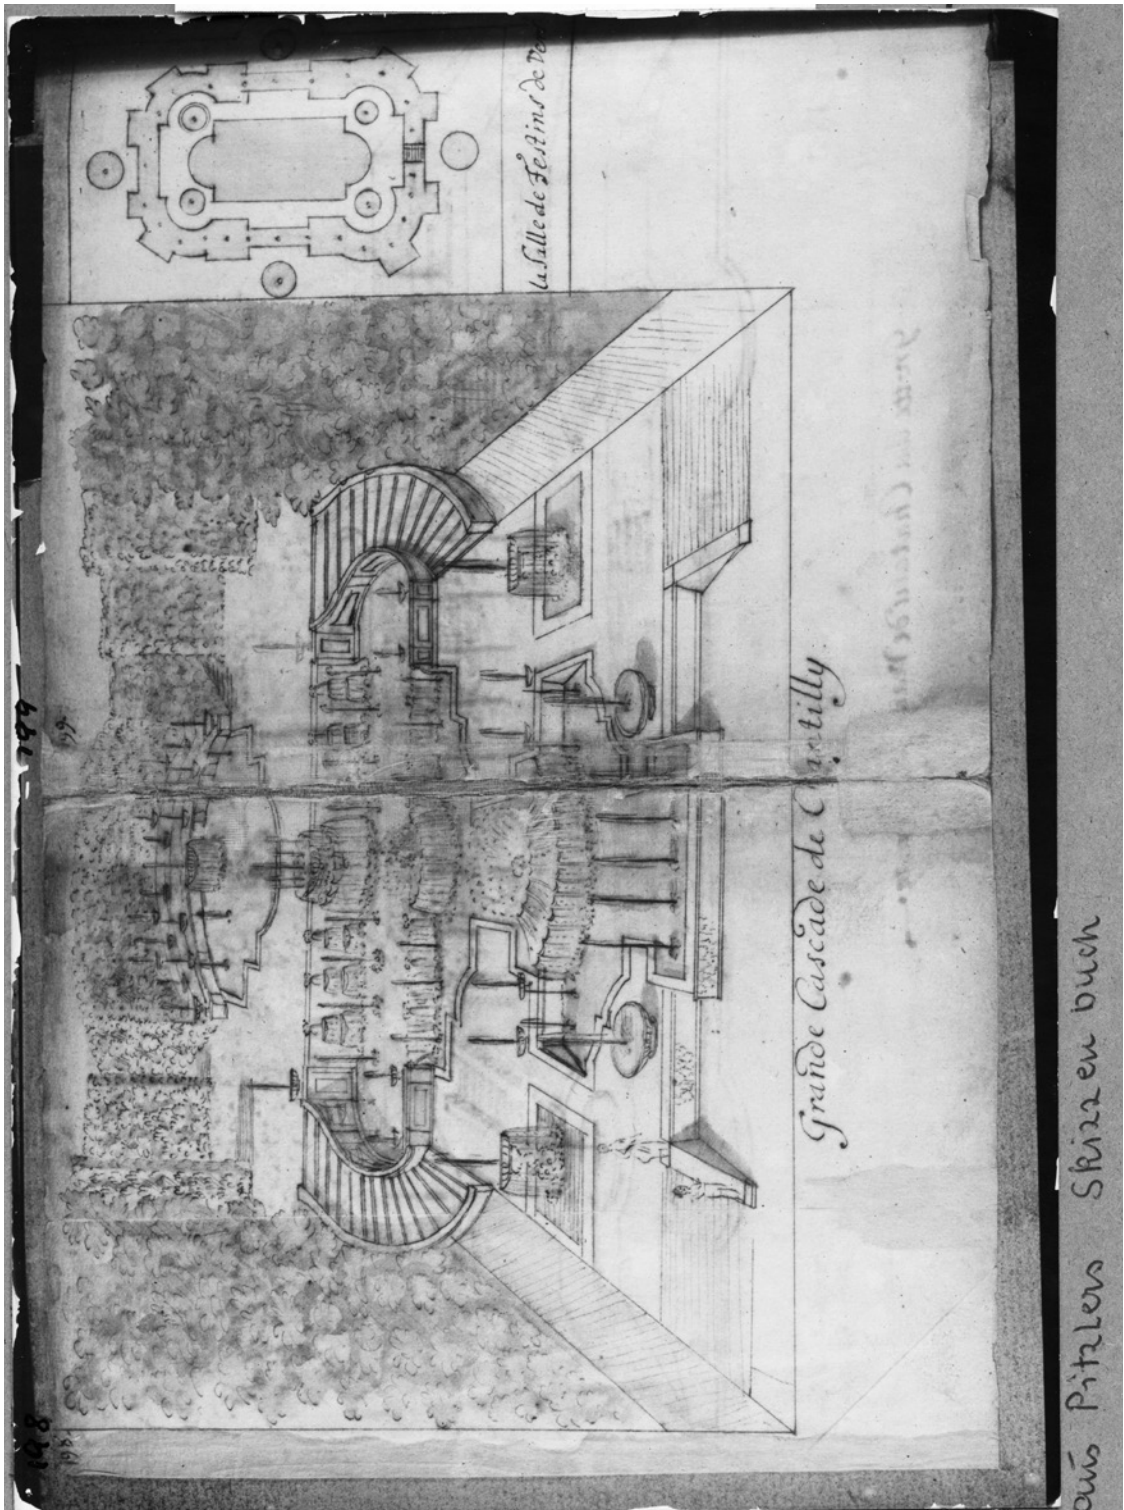 198
199
la Salle de Festins de Ver
Grande Cascade de Chantilly.
aus Pitzlers Skizzenbuch